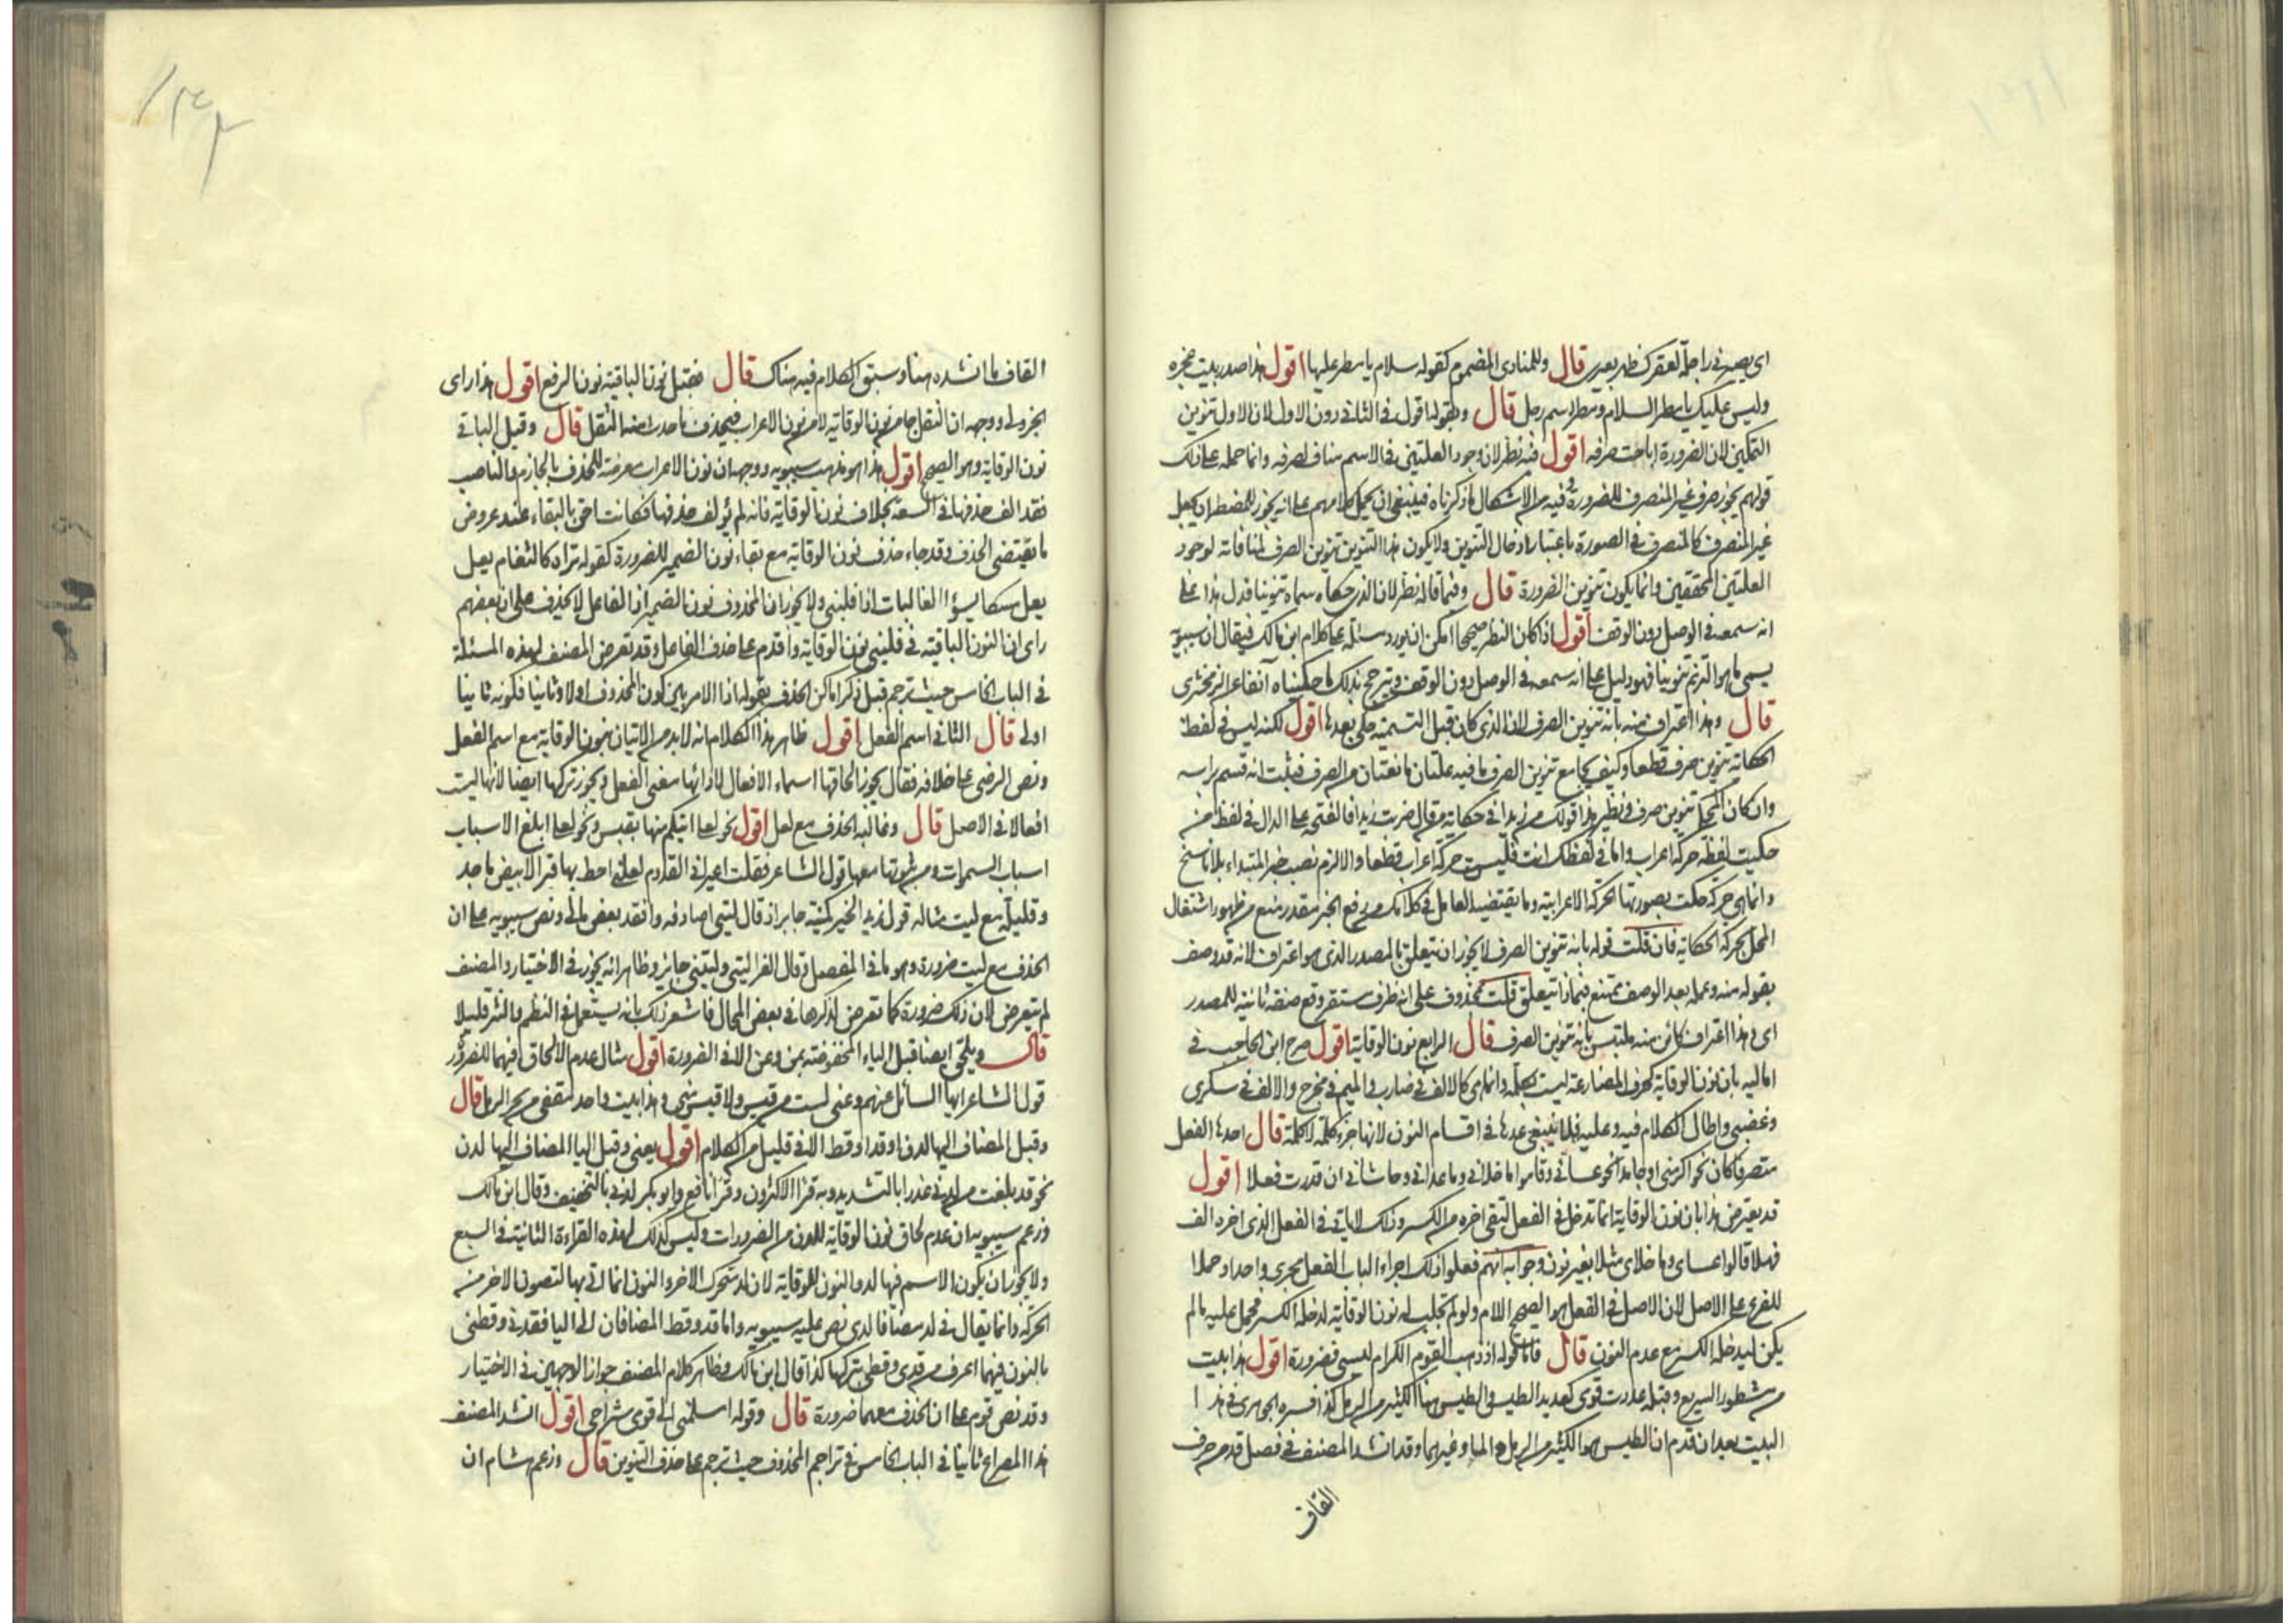 اى يصير فى راجلا لعقرك ظهر بعيرى قال وللمنادى المضموم كقوله سلام يا مطر عليها اقول هذا صدر بيت عجزه
وليس عليك يا مطر السلام ومطر اسم رجل قال وبقوله اقول فى الثانى دون الاول لان الاول تنوين
التمكين لان الضرورة اباحت صرفه اقول فيه نظر لان وجود العلتين فى الاسم مناف لصرفه وانما حمله على ذلك
قولهم يجوز صرف غير المنصرف للضرورة وفيه من الاشكال ما ذكرناه فينبغى ان يحمل كلامهم على انه يجوز للمضطر ان يجعل
غير المنصرف كالمنصرف فى الصورة باعتبار ادخال التنوين ولا يكون هذا التنوين تنوين الصرف لمنافاته لوجود
العلتين المحققتين وانما يكون تنوين الضرورة قال وفيما قاله نظر لان الذى حكاه سماه تنوينا فدل هذا على
انه سمعه فى الوصل دون الوقف اقول اذا كان النظر صحيحا امكن ان يورد مسئلة على كلام ابن مالك فيقال ان سيبويه
يسمى ما هو الترنم تنوينا فهو دليل على انه سمعه فى الوصل دون الوقف ويترجح بذلك ما حكيناه آنفا عن الزمخشرى
قال وهذا اعتراف منه بانه تنوين الصرف لانه الذى كان قبل التسمية حكى بعدها اقول لكنه ليس فى لفظ
الحكاية تنوين صرف قطعا وكيف يجامع تنوين الصرف ما فيه علتان مانعتان من الصرف فثبت انه قسم براسه
وان كان المحكى تنوين صرف ونظير هذا قولك من زيدا فى حكاية من قال ضربت زيدا فالفتحة على الدال فى لفظ من
حكيت لفظه حركة اعراب واما فى لفظك انت فليست حركة اعراب قطعا والا لزم نصب خبر المبتداء بلا ناسخ
وانما هى حركة حكت بصورتها الحركة الاعرابية وما يقتضيه العامل فى كلامك من رفع الخبر مقدر منع من ظهوره اشتغال
المحل بحركة الحكاية فان قلت قوله بانه تنوين الصرف لا يجوز ان يتعلق بالمصدر الذى هو اعتراف لانه قد وصف
بقوله منه وعمله بعد الوصف يمتنع فبماذا يتعلق قلت بمحذوف على انه ظرف مستقر وقع صفة ثانية للمصدر
اى وهذا اعتراف كائن منه ملتبس بانه تنوين الصرف قال الرابع نون الوقاية اقول صرح ابن الحاجب فى
اماليه بان نون الوقاية كحرف المضارعة ليست بكلمة وانما هى كالالف فى ضارب والميم فى مخرج والالف فى سكرى
وغضبى واطال الكلام فيه وعليه فلا ينبغى عدها فى اقسام النون لانها جزء كلمة لا كلمة قال احدها الفعل
متصرفا كان نحو اكرمنى او جامدا نحو عسانى وقاموا ما خلانى وما عدانى وحاشانى ان قدرت فعلا اقول
قد يعترض هذا بان نون الوقاية انما تدخل فى الفعل لتقى اخره من الكسر وذلك لا ياتى فى الفعل الذى اخره الف
فهلا قالوا عساى وما خلاى مثلا بغير نون وجوابه انهم فعلوا ذلك اجراء لباب الفعل مجرى واحدا وحملا
للفرع على الاصل لان الاصل فى الفعل هو الصحيح اللام ولو لم تجلب له نون الوقاية لدخله الكسر فحمل عليه ما لم
يكن ليدخله الكسر مع عدم النون قال فاما قوله اذ ذهب القوم الكرام ليسى فضرورة اقول هذا بيت
من مشطور السريع وقبله عددت قومى كعديد الطيس والطيس هنا الكثير من الرمل كذا فسره الجوهرى فى هذا
البيت بعد ان قدم ان الطيس هو الكثير من الرمل والماء وغيرهما وقد انشد المصنف فى فصل قد من حرف
القاف
القاف ما انشده هنا وسبق الكلام فيه هناك قال فقيل نون الباقية نون الرفع اقول هذا راى
الجزولى ووجهه ان الثقل جا من نون الوقاية لا من نون الاعراب فيحذف ما حدث منه الثقل قال وقيل الباقى
نون الوقاية وهو الصحيح اقول هذا هو مذهب سيبويه ووجهه ان نون الاعراب معرضة للحذف بالجازم والناصب
فقد الف حذفها فى السعة بخلاف نون الوقاية فانه لم يؤلف حذفها فكانت احق بالبقاء عند عروض
ما يقتضى الحذف وقد جاء حذف نون الوقاية مع بقاء نون الضمير للضرورة كقوله تراه كالثغام يعل
يعل مسكا يسؤ الفاليات اذا فلينى ولا يجوز ان المحذوف نون الضمير اذ الفاعل لا يحذف على ان بعضهم
راى ان النون الباقية فى فلينى نون الوقاية واقدم على حذف الفاعل وقد تعرض المصنف لهذه المسئلة
فى الباب الخامس حيث ترجم قبل ذكر اماكن الحذف بقوله اذا دار الامر بين كون المحذوف اولا وثانيا فكونه ثانيا
اولى قال الثانى اسم الفعل اقول ظاهر هذا الكلام انه لا بد من الاتيان بنون الوقاية مع اسم الفعل
ونص الرضى على خلافه فقال يجوز الحاقها اسماء الافعال لادائها معنى الفعل ويجوز تركها ايضا لانها ليست
افعالا فى الاصل قال وغالبه الحذف مع لعل اقول نحو لعلى اتيكم منها بقبس ونحو لعلى ابلغ الاسباب
اسباب السموات ومن ثبوتها معها قول الشاعر فقلت اعيرانى القدوم لعلنى اخط بها قبرا لابيض ماجد
وقليلة مع ليت مثاله قول زيد الخير كمنية جابر اذ قال ليتى اصادفه وافقد بعض مالى ونص سيبويه على ان
الحذف مع ليت ضرورة وهو ما فى المفصل وقال الفرا ليتى وليتنى جايز وظاهره انه يجوز فى الاختيار والمصنف
لم يتعرض لان ذلك ضرورة كما تعرض لذكرها فى بعض المحال فاشعر ذلك بانه يستعمل فى النظم والنثر قليلا
قال ويلحق ايضا قبل الياء المخفوضة بمن وعن الا فى الضرورة اقول مثال عدم الالحاق فيهما للضرورة
قول الشاعر ايها السائل عنهم وعنى لست من قيس ولا قيس منى وهذا بيت واحد مقفى من بحر الرمل قال
وقبل المضاف اليها لدن او قد او قط الا فى قليل من الكلام اقول يعنى وقبل اليا المضاف اليها لدن
نحو قد بلغت من لدنى عذرا بالتشديد وبه قرا الاكثرون وقرا نافع وابو بكر لدنى بالتخفيف وقال ابن مالك
وزعم سيبويه ان عدم لحاق نون الوقاية للدن من الضرورات وليس كذلك لهذه القراءة الثانية فى السبع
ولا يجوز ان يكون الاسم فيها لد والنون للوقاية لان لد متحرك الاخر والنون انما اتى بها لتصون الاخر من
الحركة وانما يقال فى لد مضافا لدى نص عليه سيبويه واما قد وقط المضافان الى اليا فقدنى وقطنى
بالنون فيهما اعرف من قدى وقطى بتركها كذا قال ابن مالك وظاهر كلام المصنف جواز الوجهين فى الاختيار
وقد نص قوم على ان الحذف معهما ضرورة قال وقوله اسلمنى الى قومى شراحى اقول انشد المصنف
هذا المصراع ثانيا فى الباب الخامس فى تراجم المحذوف حيث ترجم على حذف التنوين قال وزعم هشام ان